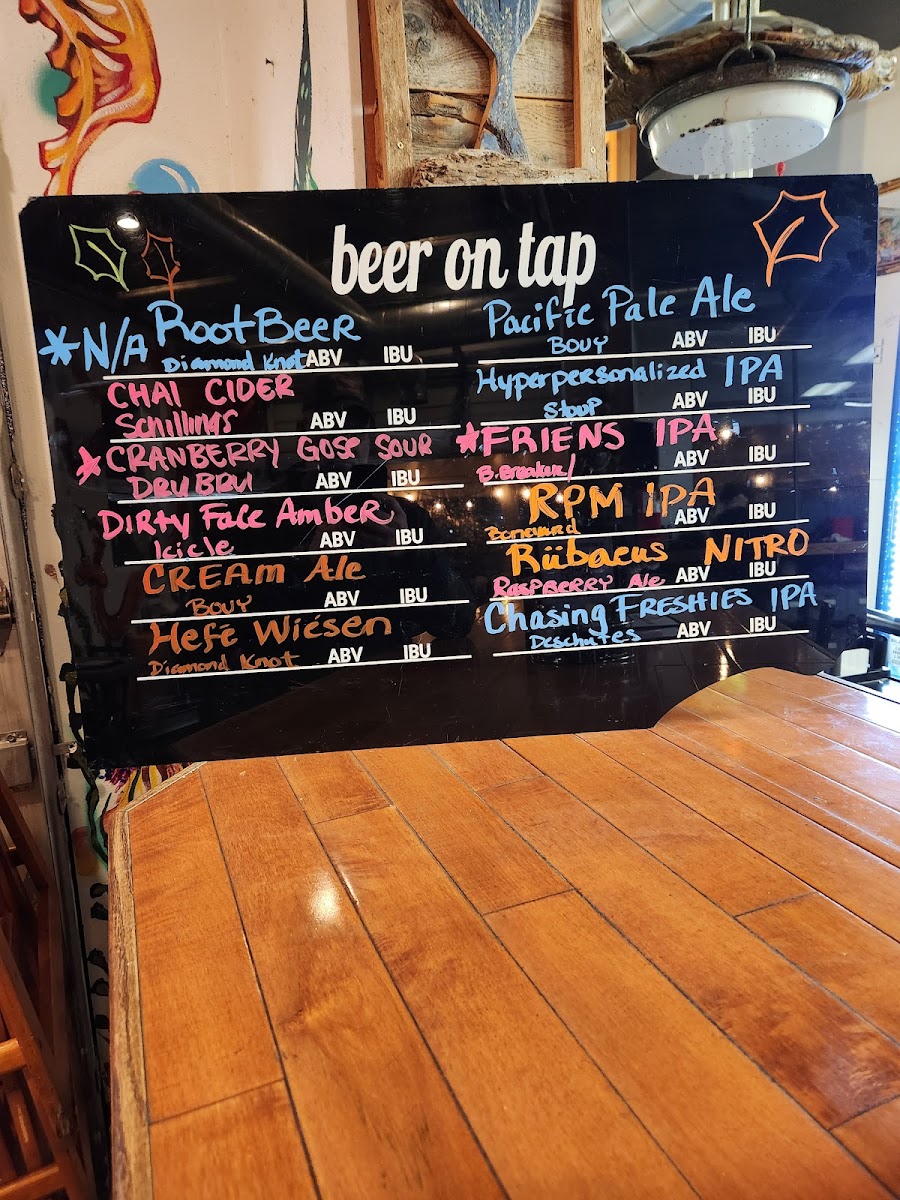 beer on tap
*N/A Root Beer
Diamond Knot ABV IBU
CHAI CIDER
Schillings ABV IBU
*CRANBERRY GOSE SOUR
DRU BRU ABV IBU
DIRty Face Amber
Icicle ABV IBU
CREAM Ale
Bouy ABV IBU
Hefé Wiésen
Diamond Knot ABV IBU
Pacific Pale Ale
Bouy ABV IBU
Hyperpersonalized IPA
Stoup ABV IBU
*FRIENS IPA
B.Breaker/ ABV IBU
RPM IPA
Boneyard ABV IBU
Rübaeus NITRO
RASPBERRY Ale ABV IBU
Chasing FRESHIES IPA
Deschutes ABV IBU